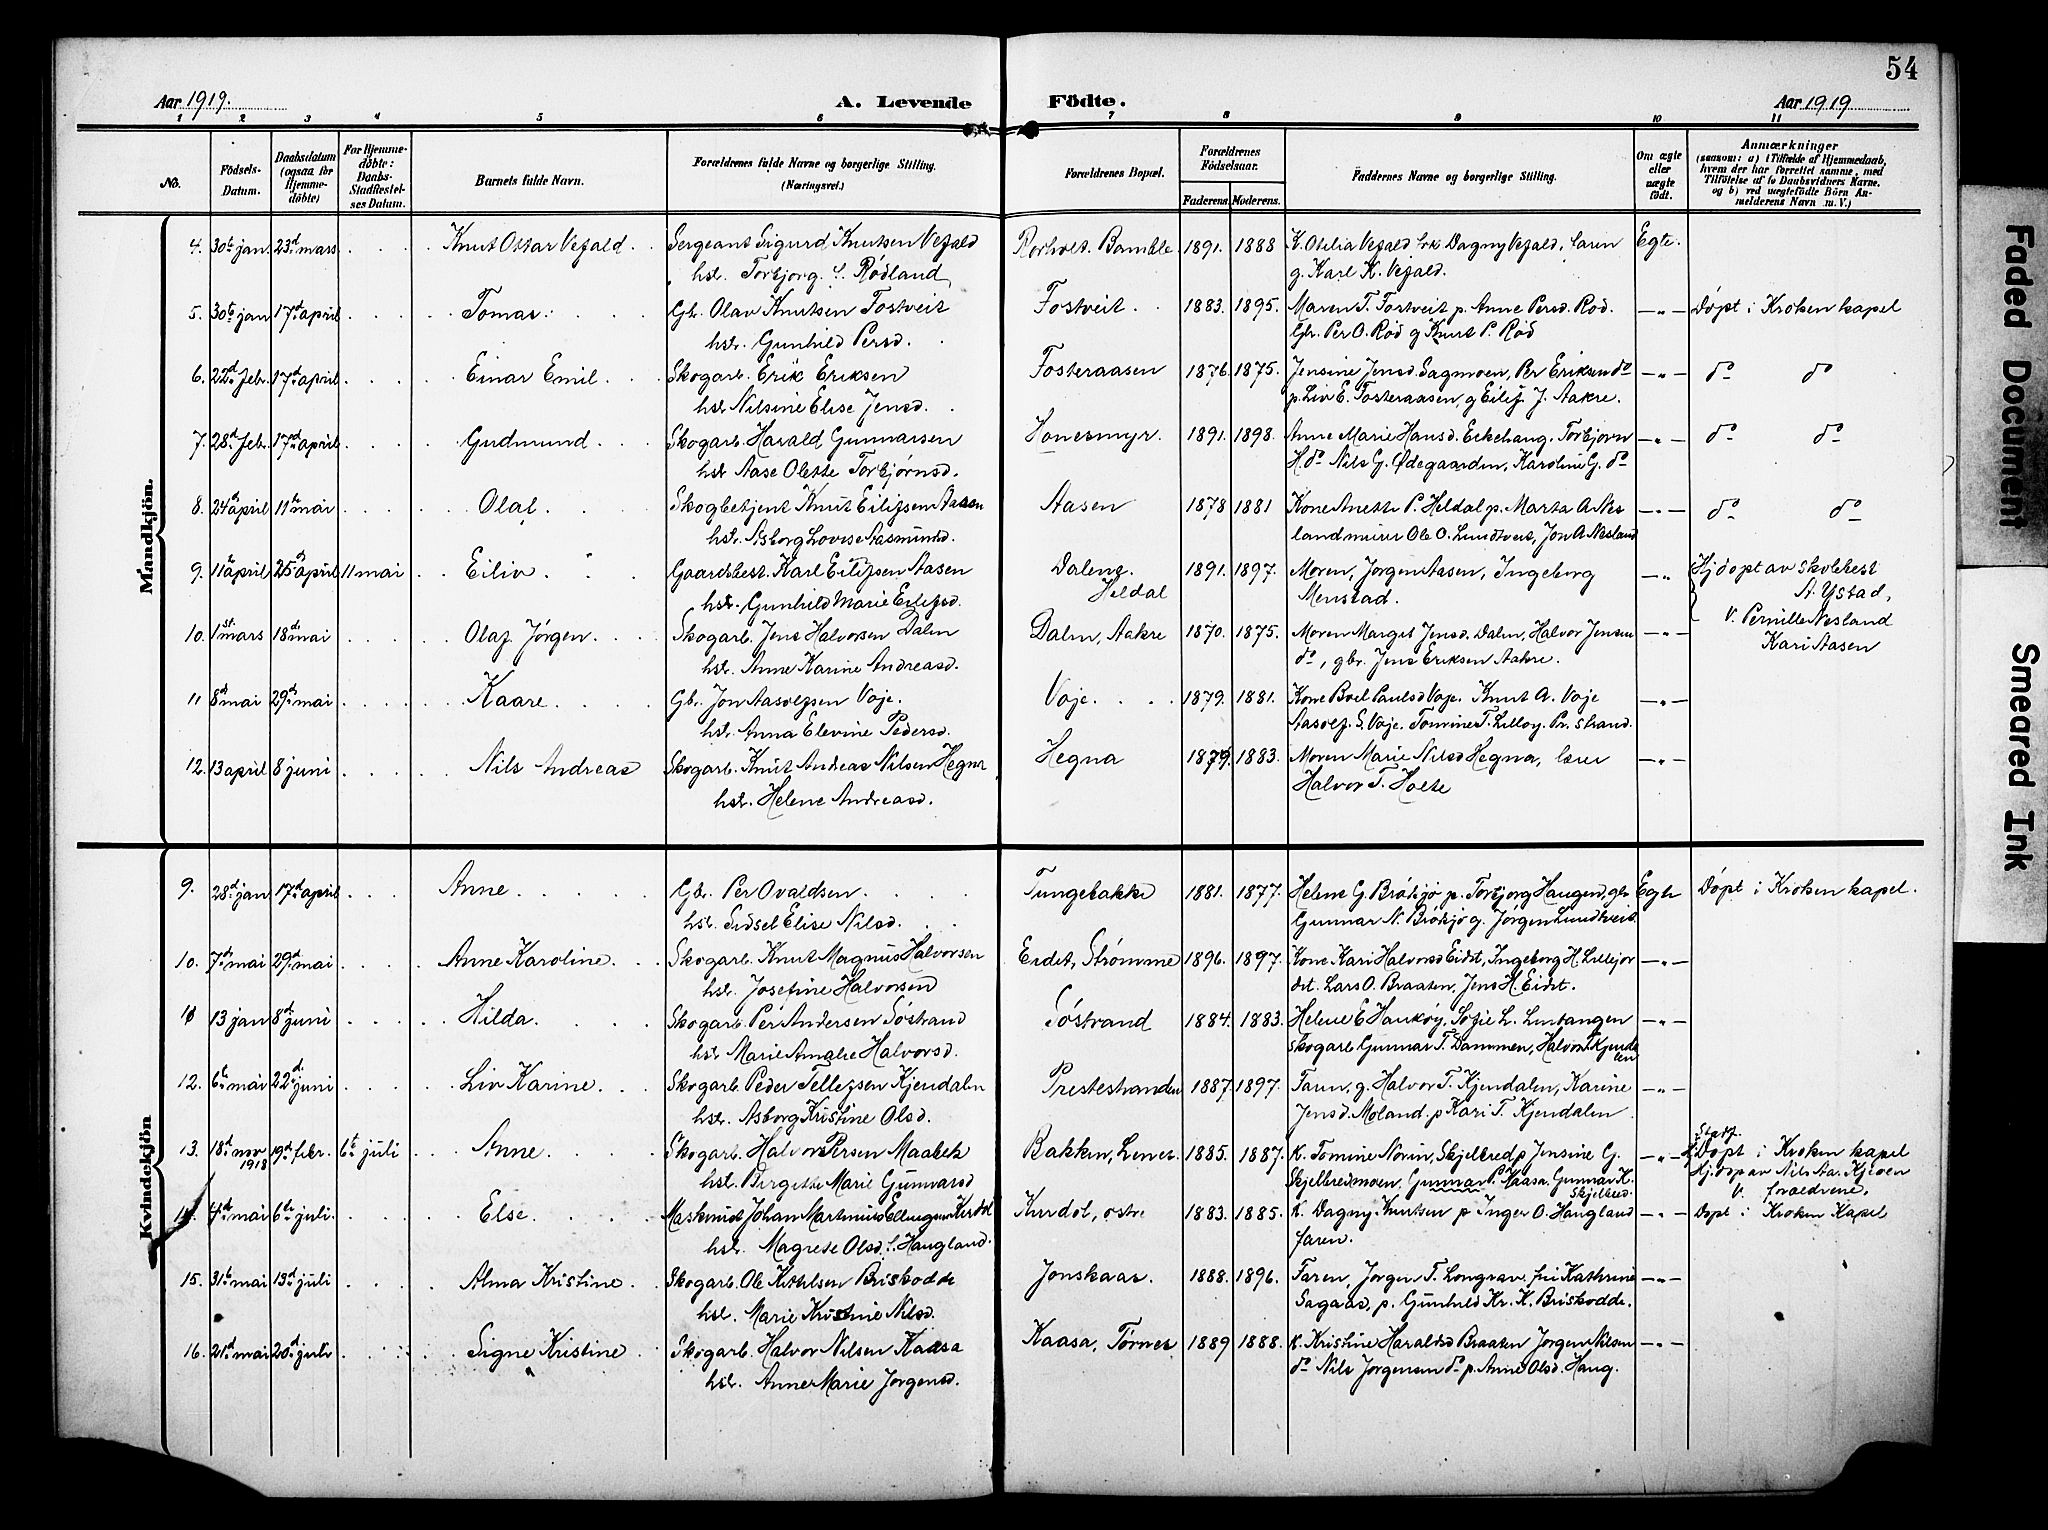 54
Aar 1919.
A. Levende Födte.
Aar 1919
1 2 3 4 5 6 7 8 9 10 11
No.
Födsels-Datum.
Daabsdatum (ogsaa for Hjemmedöbte)
For Hjemmedöbte: Daabs-Stadfæstelses Datum.
Barnets fulde Navn.
Forældrenes fulde Navne og borgerlige Stilling. (Næringsvei.)
Forældrenes Bopæl.
Forældrenes Födselsaar.
Faderens. Moderens.
Faddernes Navne og borgerlige Stilling.
Om ægte eller uægte födt.
Anmærkninger (saasom: a) i Tilfælde af Hjemmedaab, hvem der har forrettet samme, med Tilföielse af to Daabsvidners Navne, og b) ved uegtefödte Börn Anmelderens Navn m. V.)
Mandkjön.
4. 30te jan 23de mars Knut Ottar Vefald Sergeant Sigurd Knutsen Vefald Rørholt. Bamble 1891. 1888 K. Otilia Vefald frk. Dagny Vefald, faren Egte.
hst. Torbjorg f. Rødland g. Karl K. Vefald.
5. 30te jan 17de april Tomas Gbr. Olav Knutsen Fostveit Fostveit 1883. 1895. Maren T. Fostveit p. Anne Persd. Rød. —"— Døpt i Kroken kapel
hst. Gunhild Persd. Gbr. Per O. Rød g Knut P. Rød
6. 22de febr. 17de april Einar Emil Skogarb. Erik Eriksen Fosteraasen 1876. 1875. Jensine Jensd. Sagmoen, Per Eriksen do —"— do do
hst. Nilsine Elise Jensd. p. Liv E. Fosteraasen, g Eilif J. Aakre.
7. 28de febr. 17de april Gudmund Skogarb. Harald Gunnarsen Honesmyr. 1891. 1898. Anne Marie Hansd. Eikehaug. Torbjørn —"— do do
hst. Aase Olette Torbjørnsd. H. do Nils G. Ødegaarden, Karoline G. do
8. 24de april 11te mai Olaf Skogbetjent Knut Eilifsen Aasen Aasen 1878 1881 Kone Anette P. Heldal p. Marta A. Nes —"— do do
hst. Asborg Lovise Aasmundsd. land murer Ole O. Lundtveit, Jon A. Nesland
9. 11te april 25de april 11 mai Eiliv Gaardsbest. Karl Eilifsen Aasen Dalene. 1891. 1897. Moren, Jørgen Aasen, Ingeborg —"— Hjdøpt av skolebest
hst. Gunhild Marie Eilifsd. Heldal Menstad. A. Ystad,
10. 1st mars 18de mai Olaf Jörgen Skogarb. Jens Halvorsen Dalen Dalen, Aakre 1870. 1875. Moren Margit Jensd. Dalen, Halvor Jensen —"— V. Pernille Nesland
hst. Anne Karine Andreasd. do, gbr. Jens Eriksen Aakre. Kari Aasen
11 8de mai 29de mai Kaare Gb. Jon Aasolfsen Voje. Voje. 1879. 1881. Kone Boel Paulsd Voje. Knut A. Voje —"—
hst. Anna Elevine Pedersd. Aasolf. S. Voje. Tomine T. Lilloy. Pr. strand.
12. 13 april 8 juni Nils Andreas Skogarb. Knut Andreas Nilsen Hegna Hegna 1879. 1883. Moren Marie Nilsd Hegna, lærer —"—
hst. Helene Andreasd. Halvor T. Holte
Kvindekjön
9. 28de jan 17de april Anne Gb. Per Ovaldsen Tungebakke 1881. 1877. Helene G. Bråtsjø p. Torbjorg Haugen, gbr Egte Døpt i Kroken kapel.
hst. Sidsel Elise Nilsd. Gunnar N. Bråtsjø g. Jørgen Lundtveit
10. 7de mai 29de mai Anne Karoline Skogarb. Knut Magnus Halvorsen Eidet, Strømme 1896. 1897. Kone Kari Halvorsd Eidet, Ingeborg H. Lillejor —"—
hst. Josefine Halvorsen det. Lars O. Braaten, Jens H. Eidet.
11 13 jan 8de juni Hilda Skogarb. Per Andersen Søstrand Søstrand 1884. 1883. Helene E Haukøy, Sofie L. Lintangen —"—
hst. Marie Amalie Halvorsd. Skogarb Gunnar T. Dammen, Halvor T. Kjendalen
12. 6te mai 22de juni Liv Karine Skogarb. Peder Tellefsen Kjendalen Prestestranden 1887. 1897. Faren, g. Halvor T. Kjendalen, Karine —"—
hst. Asborg Kristine Olsd. Jensd. Moland. p Kari T. Kjendalen
13. 18de nov 1918 19de febr. 6te juli Anne Skogarb. Halvor Persen Maabek Bakken, Lenes. 1885. 1887. K. Tomine Norin, Skjelbred p Jensine G. —"— Stadf. Døpt i Kroken kapel
hst. Birgitte Marie Gunnarsd Skjelbredmoen. Gunnar P. Kaasa. Gunnar K. Skjelbred. Hjdøp av Nils Aa. Kjeven V. foreldrene.
14. 4de mai 6te juli. Else Maskinist Johan Martinius Ellingsen Kurdøl Kurdøl, østre 1883. 1885. K. Dagny Knutsen p Inger O. Haugland —"— Døpt i Kroken Kapel
hst. Magrete Olsd. f. Haugland. faren.
15. 31te mai 13de juli Alma Kristine Skogarb. Ole Kittilsen Briskodde Jonskaas. 1888. 1896. Faren, Jorgen T. Longrav. frk Kathrine —"—
hst. Marie Kristine Nilsd. Sagaas, p. Gunhild Kr. K. Briskodde.
16. 21de mai 20de juli Signe Kristine Skogarb. Halvor Nilsen Kaasa Kaasa, Törnes 1889 1888. K. Kristine Haraldsd Braaten Jorgen Nilsen —"—
hst. Anne Marie Jorgensd. do Nils Jorgensen do p. Anne Olsd. Haug.
Faded Document
Smeared Ink